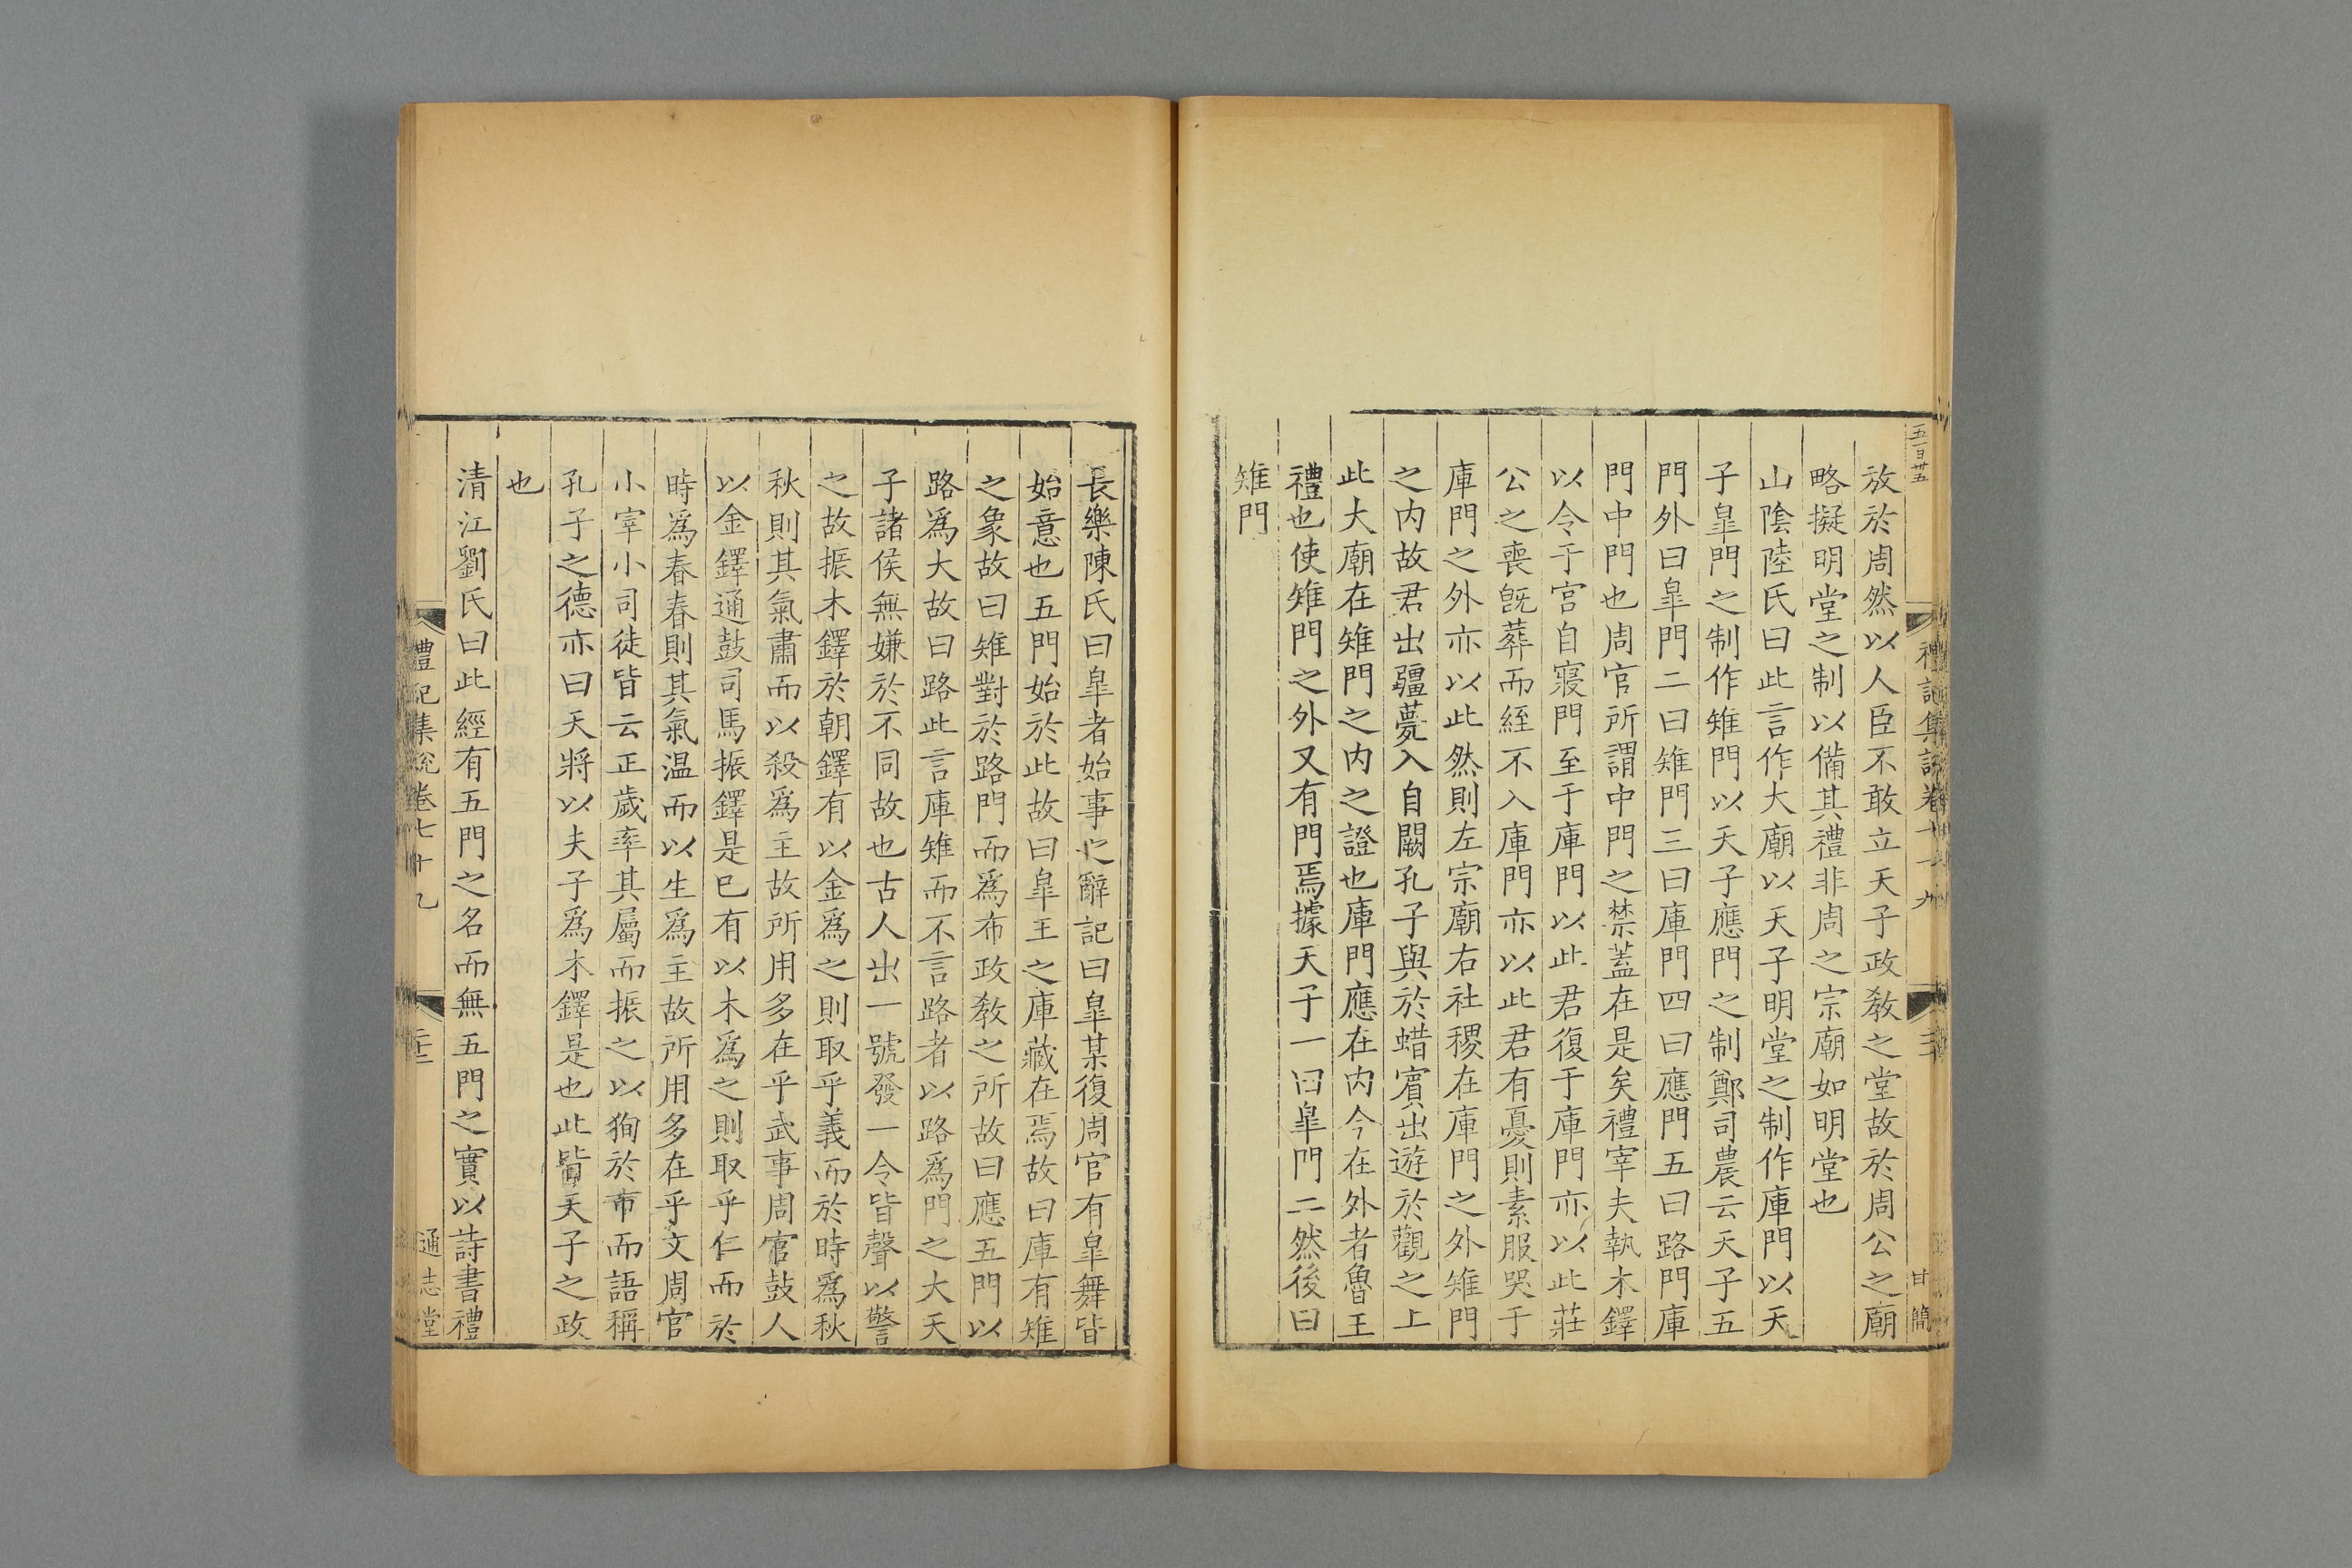 五百卅五
放於周然以人臣不敢立天子政敎之堂故於周公之廟
略擬明堂之制以備其禮非周之宗廟如明堂也
山陰陸氏曰此言作大廟以天子明堂之制作庫門以天
子臯門之制作雉門以天子應門之制鄭司農云天子五
門外曰臯門二曰雉門三曰庫門四曰應門五曰路門庫
門中門也周官所謂中門之禁蓋在是矣禮宰夫執木鐸
以令于宫自寢門至于庫門以此君復于庫門亦以此莊
公之喪旣葬而絰不入庫門亦以此君有憂則素服哭于
庫門之外亦以此然則左宗廟右社稷在庫門之外雉門
之内故君出疆薨入自闕孔子與於蜡賓出遊於觀之上
此大廟在雉門之内之證也庫門應在内今在外者魯王
禮也使雉門之外又有門焉據天子一曰臯門二然後曰
雉門
甘簡
長樂陳氏曰臯者始事之辭記曰臯某復周官有臯舞皆
始意也五門始於此故曰臯王之庫藏在焉故曰庫有雉
之象故曰雉對於路門而爲布政敎之所故曰應五門以
路爲大故曰路此言庫雉而不言路者以路爲門之大天
子諸侯無嫌於不同故也古人出一號發一令皆聲以警
之故振木鐸於朝鐸有以金爲之則取乎義而於時爲秋
秋則其氣肅而以殺爲主故所用多在乎武事周官鼓人
以金鐸通鼓司馬振鐸是已有以木爲之則取乎仁而於
時爲春春則其氣温而以生爲主故所用多在乎文周官
小宰小司徒皆云正歲率其屬而振之以狥於市而語稱
孔子之德亦曰天將以夫子爲木鐸是也此皆天子之政
也
清江劉氏曰此經有五門之名而無五門之實以詩書禮
禮記集說卷七十九
通志堂